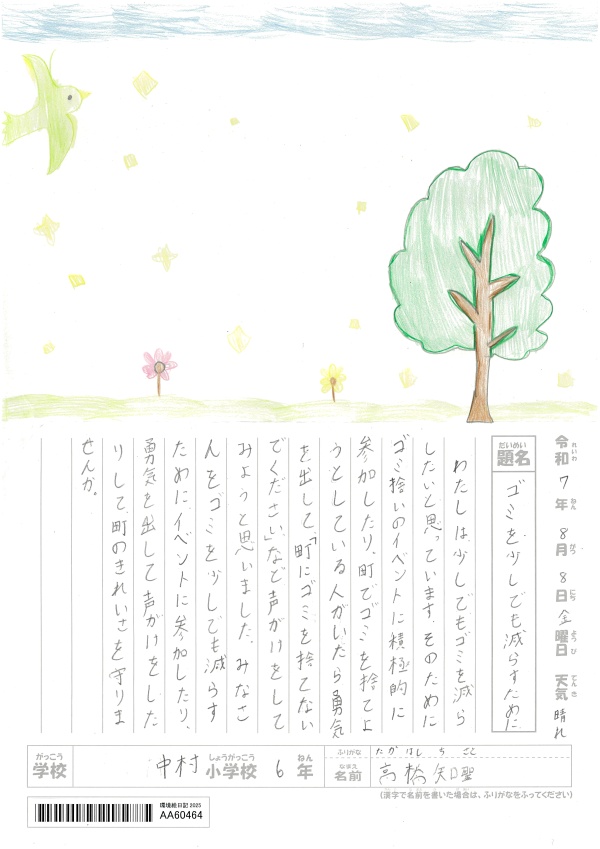 令和7年8月8日金曜日 天気 晴れ
れいわ ねん がつ にち ようび てんき
だいめい
題名 ゴミを少しでも減らすために
わたしは少しでもゴミを減ら
したいと思っています。そのために
ゴミ捨いのイベントに積極的に
参加したり、町でゴミを捨てよ
うとしている人がいたら勇気
を出して「町にゴミを捨てない
でください」など声がけをして
みようと思いました。みなさ
んをゴミを少しでも減らす
ために、イベントに参加したり、
勇気を出して声がけをした
りして町のきれいさを守りま
せんか。
がっこう しょうがっこう ねん
学校 中村小学校 6年
ふりがな たかはし ちさと
なまえ
名前 高橋 知聖
(漢字で名前を書いた場合は、ふりがなをふってください)
環境絵日記 2025
AA60464